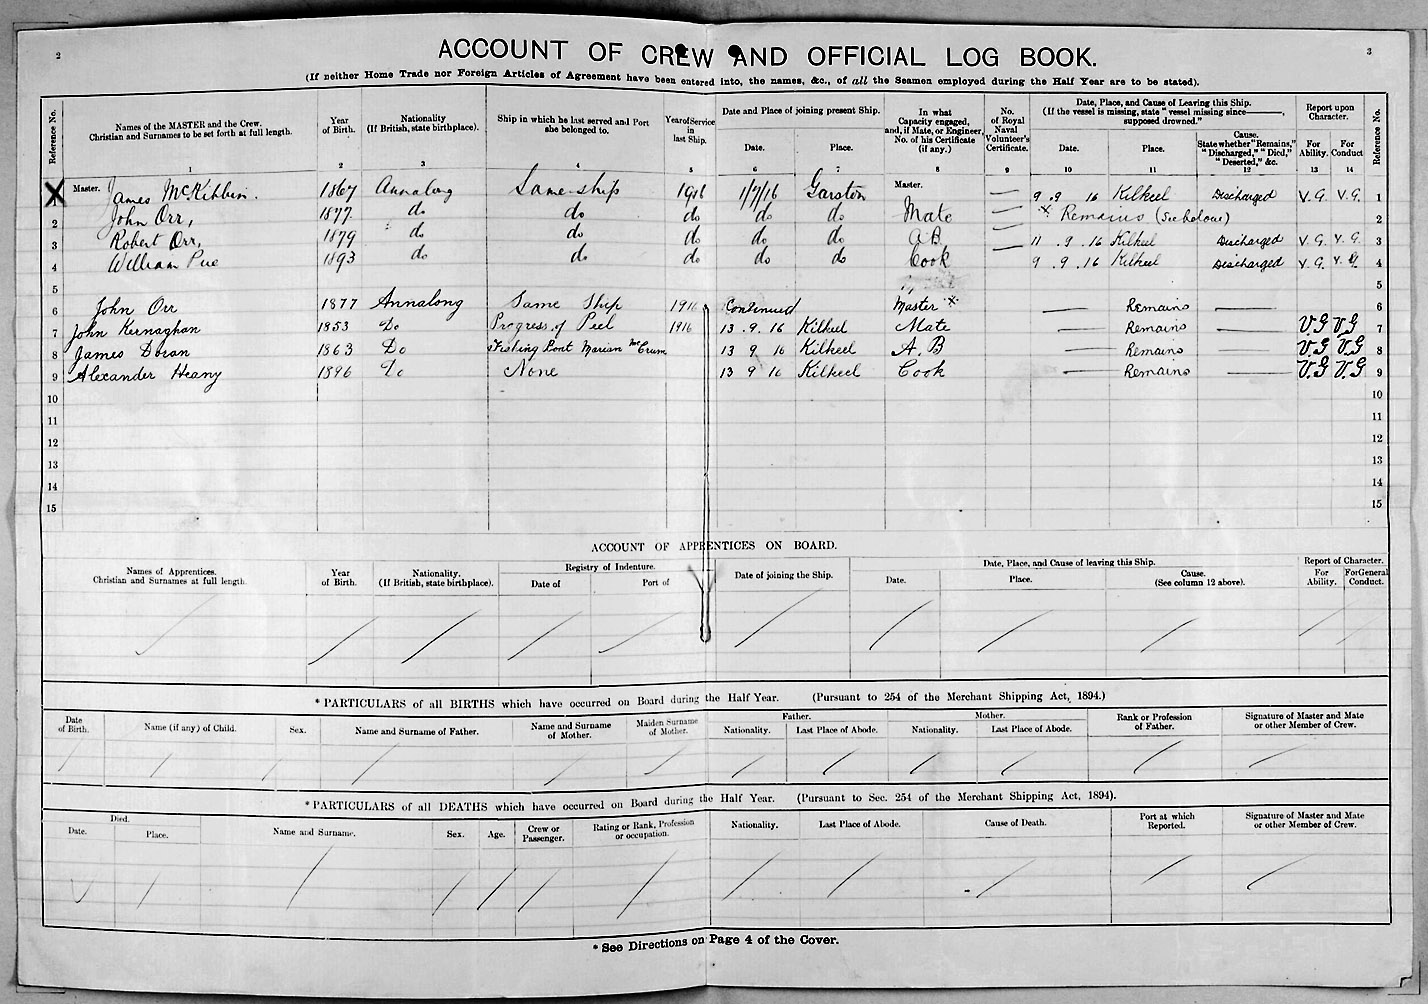 2
ACCOUNT OF CREW AND OFFICIAL LOG BOOK.
3
(If neither Home Trade nor Foreign Articles of Agreement have been entered into, the names, &c., of all the Seamen employed during the Half Year are to be stated).
Reference No.
Names of the MASTER and the Crew.
Christian and Surnames to be set forth at full length.
1
Year of Birth.
2
Nationality
(If British, state birthplace).
3
Ship in which he last served and Port she belonged to.
4
Year of Service in last Ship.
5
Date and Place of joining present Ship.
Date.
6
Place.
7
In what Capacity engaged, and, if Mate, or Engineer, No. of his Certificate (if any).
8
No. of Royal Naval Volunteer's Certificate.
9
Date, Place, and Cause of Leaving this Ship.
(If the vessel is missing, state "vessel missing since———, supposed drowned."
Date.
10
Place.
11
Cause.
State whether "Remains," "Discharged," "Died," "Deserted," &c.
12
Report upon Character.
For Ability.
13
For Conduct
14
Reference No.
X Master. James McKibbin. 1867 Annalong Same ship 1916 1/7/16 Garston Master. — 9 . 9 . 16 Kilkeel Discharged V.G. V.G. 1
2 John Orr, 1877 do do do do do Mate — x Remains (See below) 2
3 Robert Orr, 1879 do do do do do A.B. — 11 . 9 . 16 Kilkeel Discharged V.G. V.G. 3
4 William Pue 1893 do do do do do Cook 9 . 9 . 16 Kilkeel Discharged V.G. V.G. 4
5 5
6 John Orr 1877 Annalong Same Ship 1916 Continued Master x — Remains — 6
7 John Kernaghan 1853 Do Progress of Peel 1916 13 . 9 . 16 Kilkeel Mate — Remains — V.G V.G 7
8 James Doran 1863 Do Fishing Boat Marian McCrum 13 9 16 Kilkeel A.B — Remains — V.G V.G 8
9 Alexander Heany 1896 Do None 13 9 16 Kilkeel Cook — Remains — V.G V.G 9
10 10
11 11
12 12
13 13
14 14
15 15
ACCOUNT OF APPRENTICES ON BOARD.
Names of Apprentices.
Christian and Surnames at full length.
Year of Birth.
Nationality.
(If British, state birthplace).
Registry of Indenture.
Date of
Port of
Date of joining the Ship.
Date, Place, and Cause of leaving this Ship.
Date.
Place.
Cause.
(See column 12 above).
Report of Character.
For Ability.
For General Conduct.
* PARTICULARS of all BIRTHS which have occurred on Board during the Half Year. (Pursuant to 254 of the Merchant Shipping Act, 1894.)
Date of Birth.
Name (if any) of Child.
Sex.
Name and Surname of Father.
Name and Surname of Mother.
Maiden Surname of Mother.
Father.
Nationality.
Last Place of Abode.
Mother.
Nationality.
Last Place of Abode.
Rank or Profession of Father.
Signature of Master and Mate or other Member of Crew.
* PARTICULARS of all DEATHS which have occurred on Board during the Half Year. (Pursuant to Sec. 254 of the Merchant Shipping Act, 1894).
Died.
Date.
Place.
Name and Surname.
Sex.
Age.
Crew or Passenger.
Rating or Rank, Profession or occupation.
Nationality.
Last Place of Abode.
Cause of Death.
Port at which Reported.
Signature of Master and Mate or other Member of Crew.
* See Directions on Page 4 of the Cover.